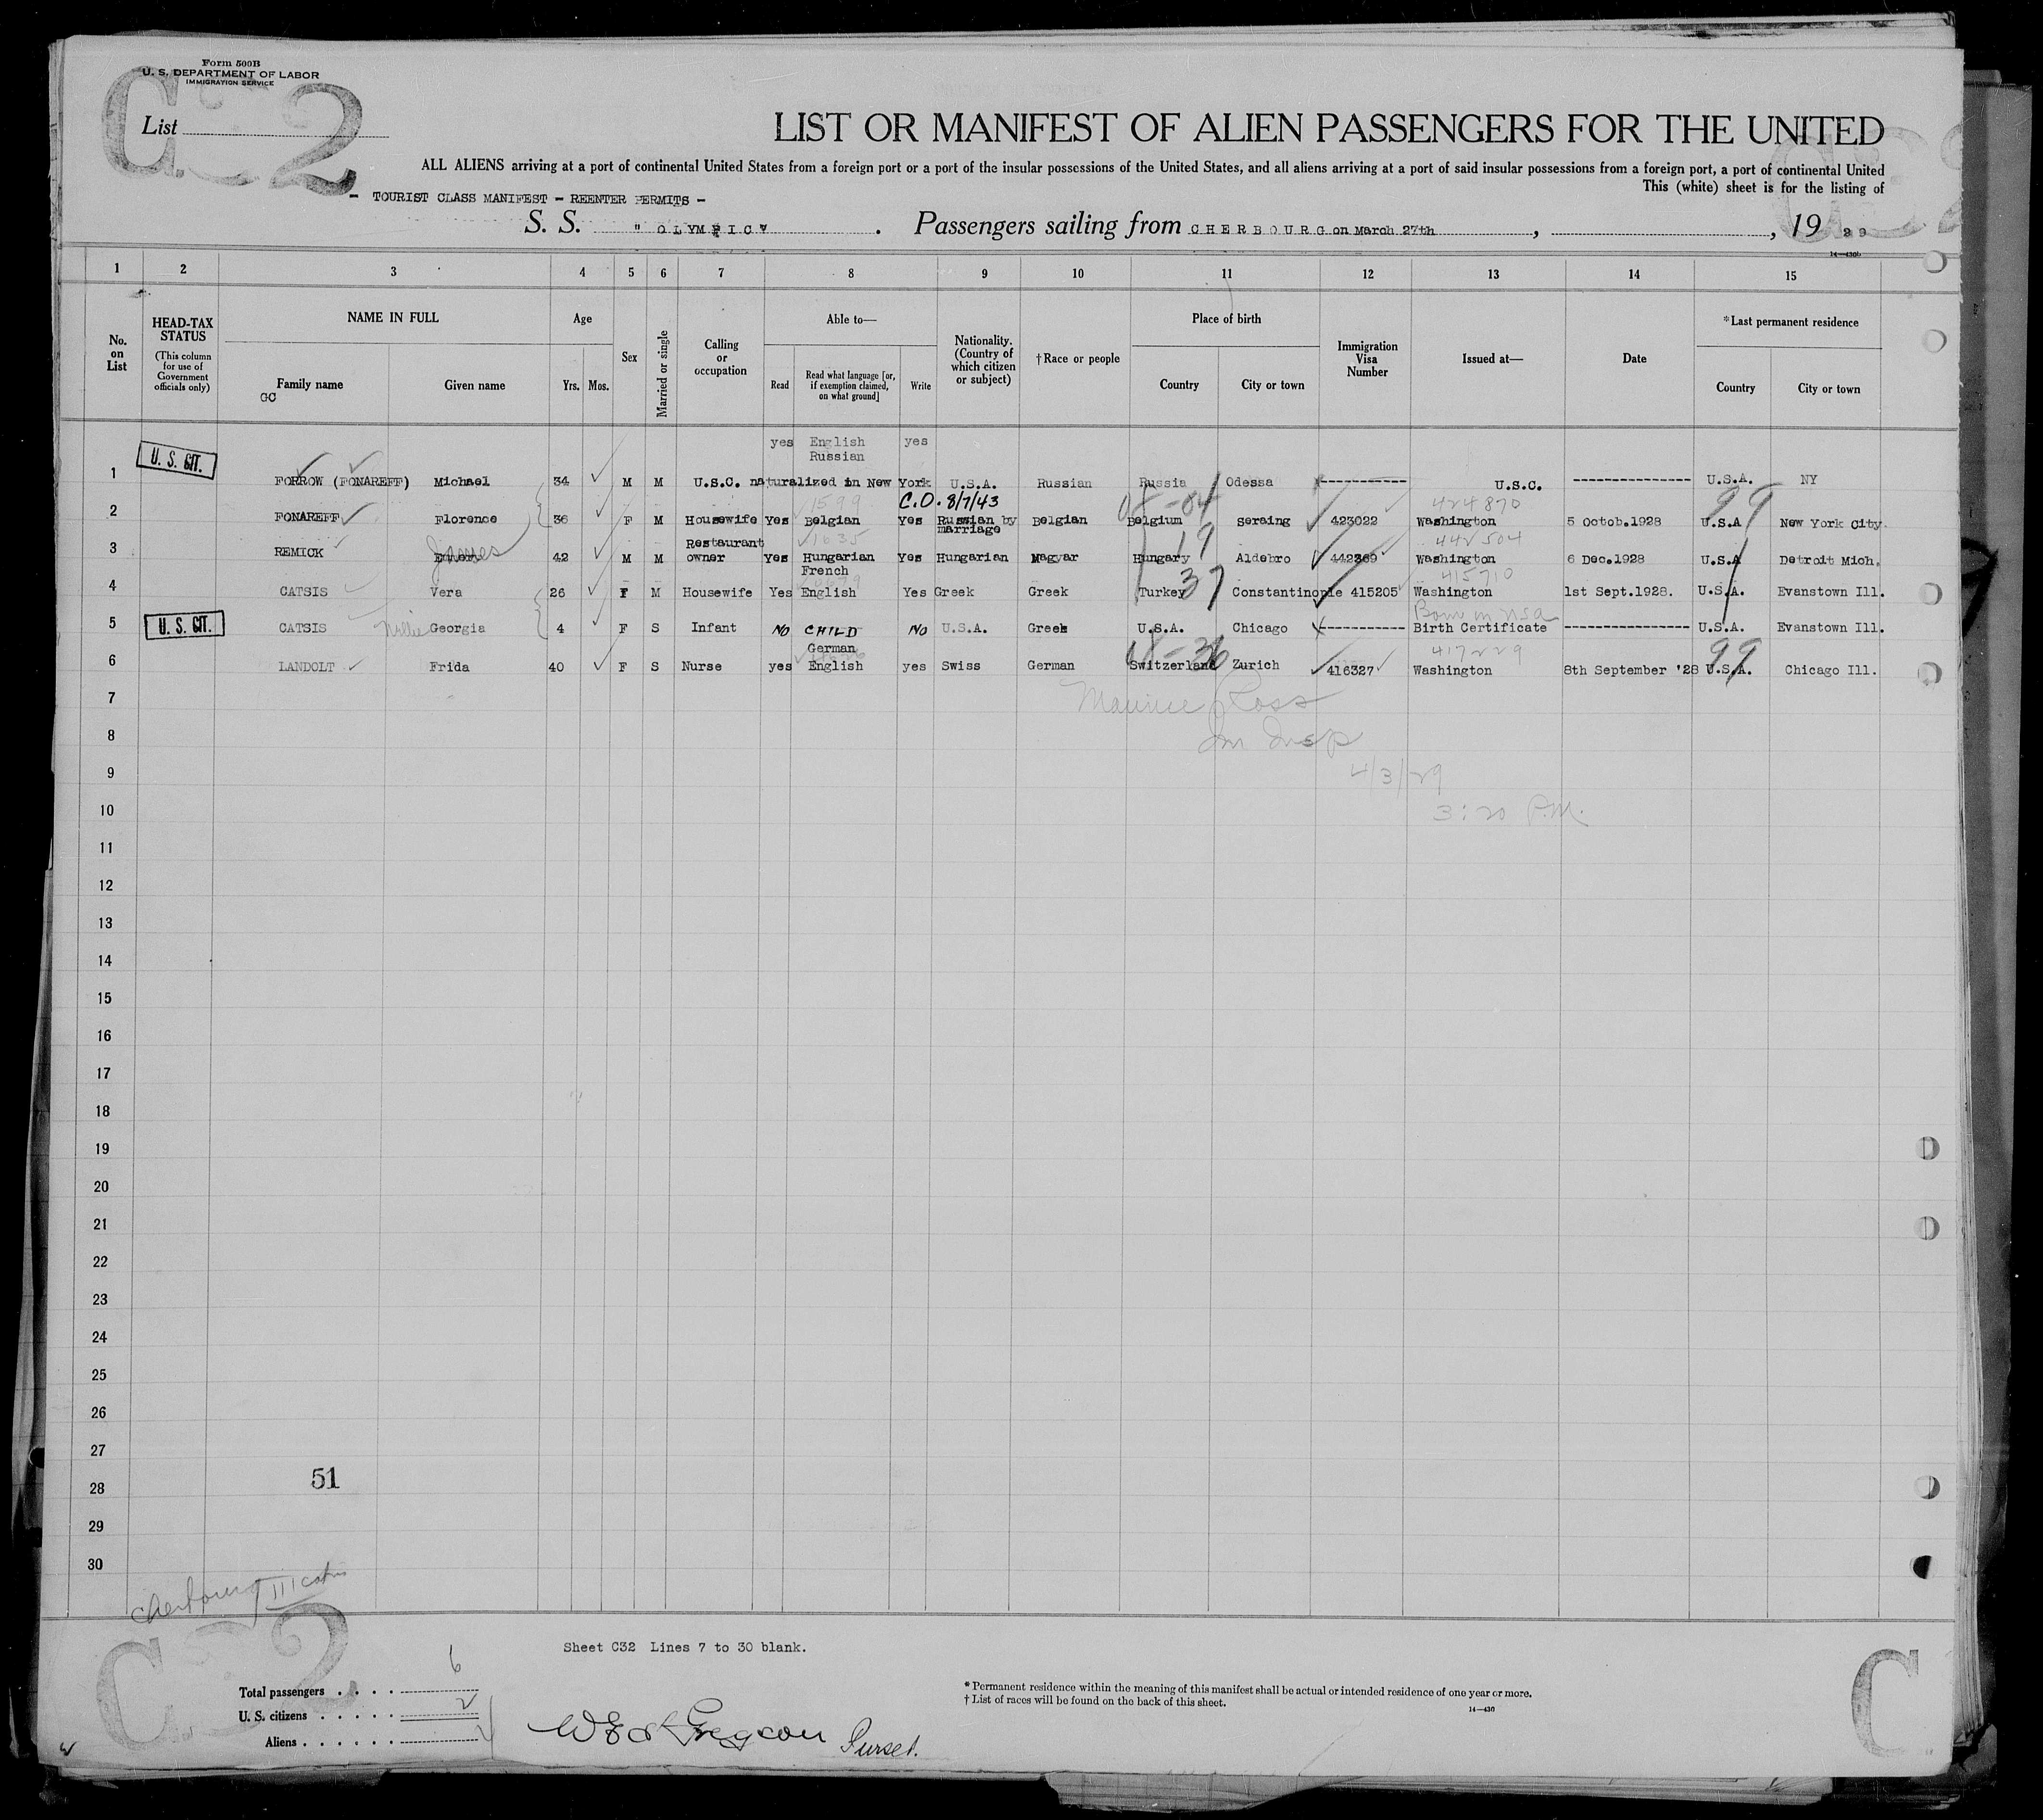 Form 500B
U. S. DEPARTMENT OF LABOR
IMMIGRATION SERVICE
C32
List
LIST OR MANIFEST OF ALIEN PASSENGERS FOR THE UNITED
ALL ALIENS arriving at a port of continental United States from a foreign port or a port of the insular possessions of the United States, and all aliens arriving at a port of said insular possessions from a foreign port, a port of continental United
This (white) sheet is for the listing of
- TOURIST CLASS MANIFEST - REENTER PERMITS -
S. S. "OLYMPIC". Passengers sailing from CHERBOURG on March 27th, , 19 29
14-430b
1 2 3 4 5 6 7 8 9 10 11 12 13 14 15
No. on List
HEAD-TAX STATUS
(This column for use of Government officials only)
NAME IN FULL
Family name
GC
Given name
Age
Yrs. Mos.
Sex
Married or single
Calling or occupation
Able to—
Read
Read what language [or, if exemption claimed, on what ground]
Write
Nationality. (Country of which citizen or subject)
†Race or people
Place of birth
Country
City or town
Immigration Visa Number
Issued at—
Date
*Last permanent residence
Country
City or town
yes English yes
Russian
U. S. CIT.
1 FORROW (FONAREFF) Michael 34 M M U.S.C. naturalized in New York U.S.A. Russian Russia Odessa ----------- U.S.C. --------------- U.S.A. NY
1599 C.O. 8/7/43 424870
2 FONAREFF Florence 36 F M Housewife Yes Belgian Yes Russian by marriage Belgian Belgium Seraing 423022 Washington 5 Octob.1928 U.S.A New York City.
Restaurant 1635 442504
3 REMICK James 42 M M owner Yes Hungarian Yes Hungarian Magyar Hungary Aldebro 442369 Washington 6 Dec.1928 U.S.A Detroit Mich.
French 415710
4 CATSIS Vera 26 F M Housewife Yes English Yes Greek Greek Turkey Constantinople 415205 Washington 1st Sept.1928. U.S.A. Evanstown Ill.
Born in USA
5 U. S. CIT. CATSIS Georgia 4 F S Infant NO CHILD NO U.S.A. Greek U.S.A. Chicago ----------- Birth Certificate --------------- U.S.A. Evanstown Ill.
German 417229
6 LANDOLT Frida 40 F S Nurse yes English yes Swiss German Switzerland Zurich 416327 Washington 8th September '28 U.S.A. Chicago Ill.
7 Maurice Ross
8 Im Insp
9 4/3/29
10 3:20 P.M.
11
12
13
14
15
16
17
18
19
20
21
22
23
24
25
26
27
51
28
29
30
Cherbourg III
C32
Sheet C32 Lines 7 to 30 blank.
Total passengers . . . . 6
U. S. citizens . . . . . 2
Aliens . . . . . .
Purser.
* Permanent residence within the meaning of this manifest shall be actual or intended residence of one year or more.
† List of races will be found on the back of this sheet.
14-430
C